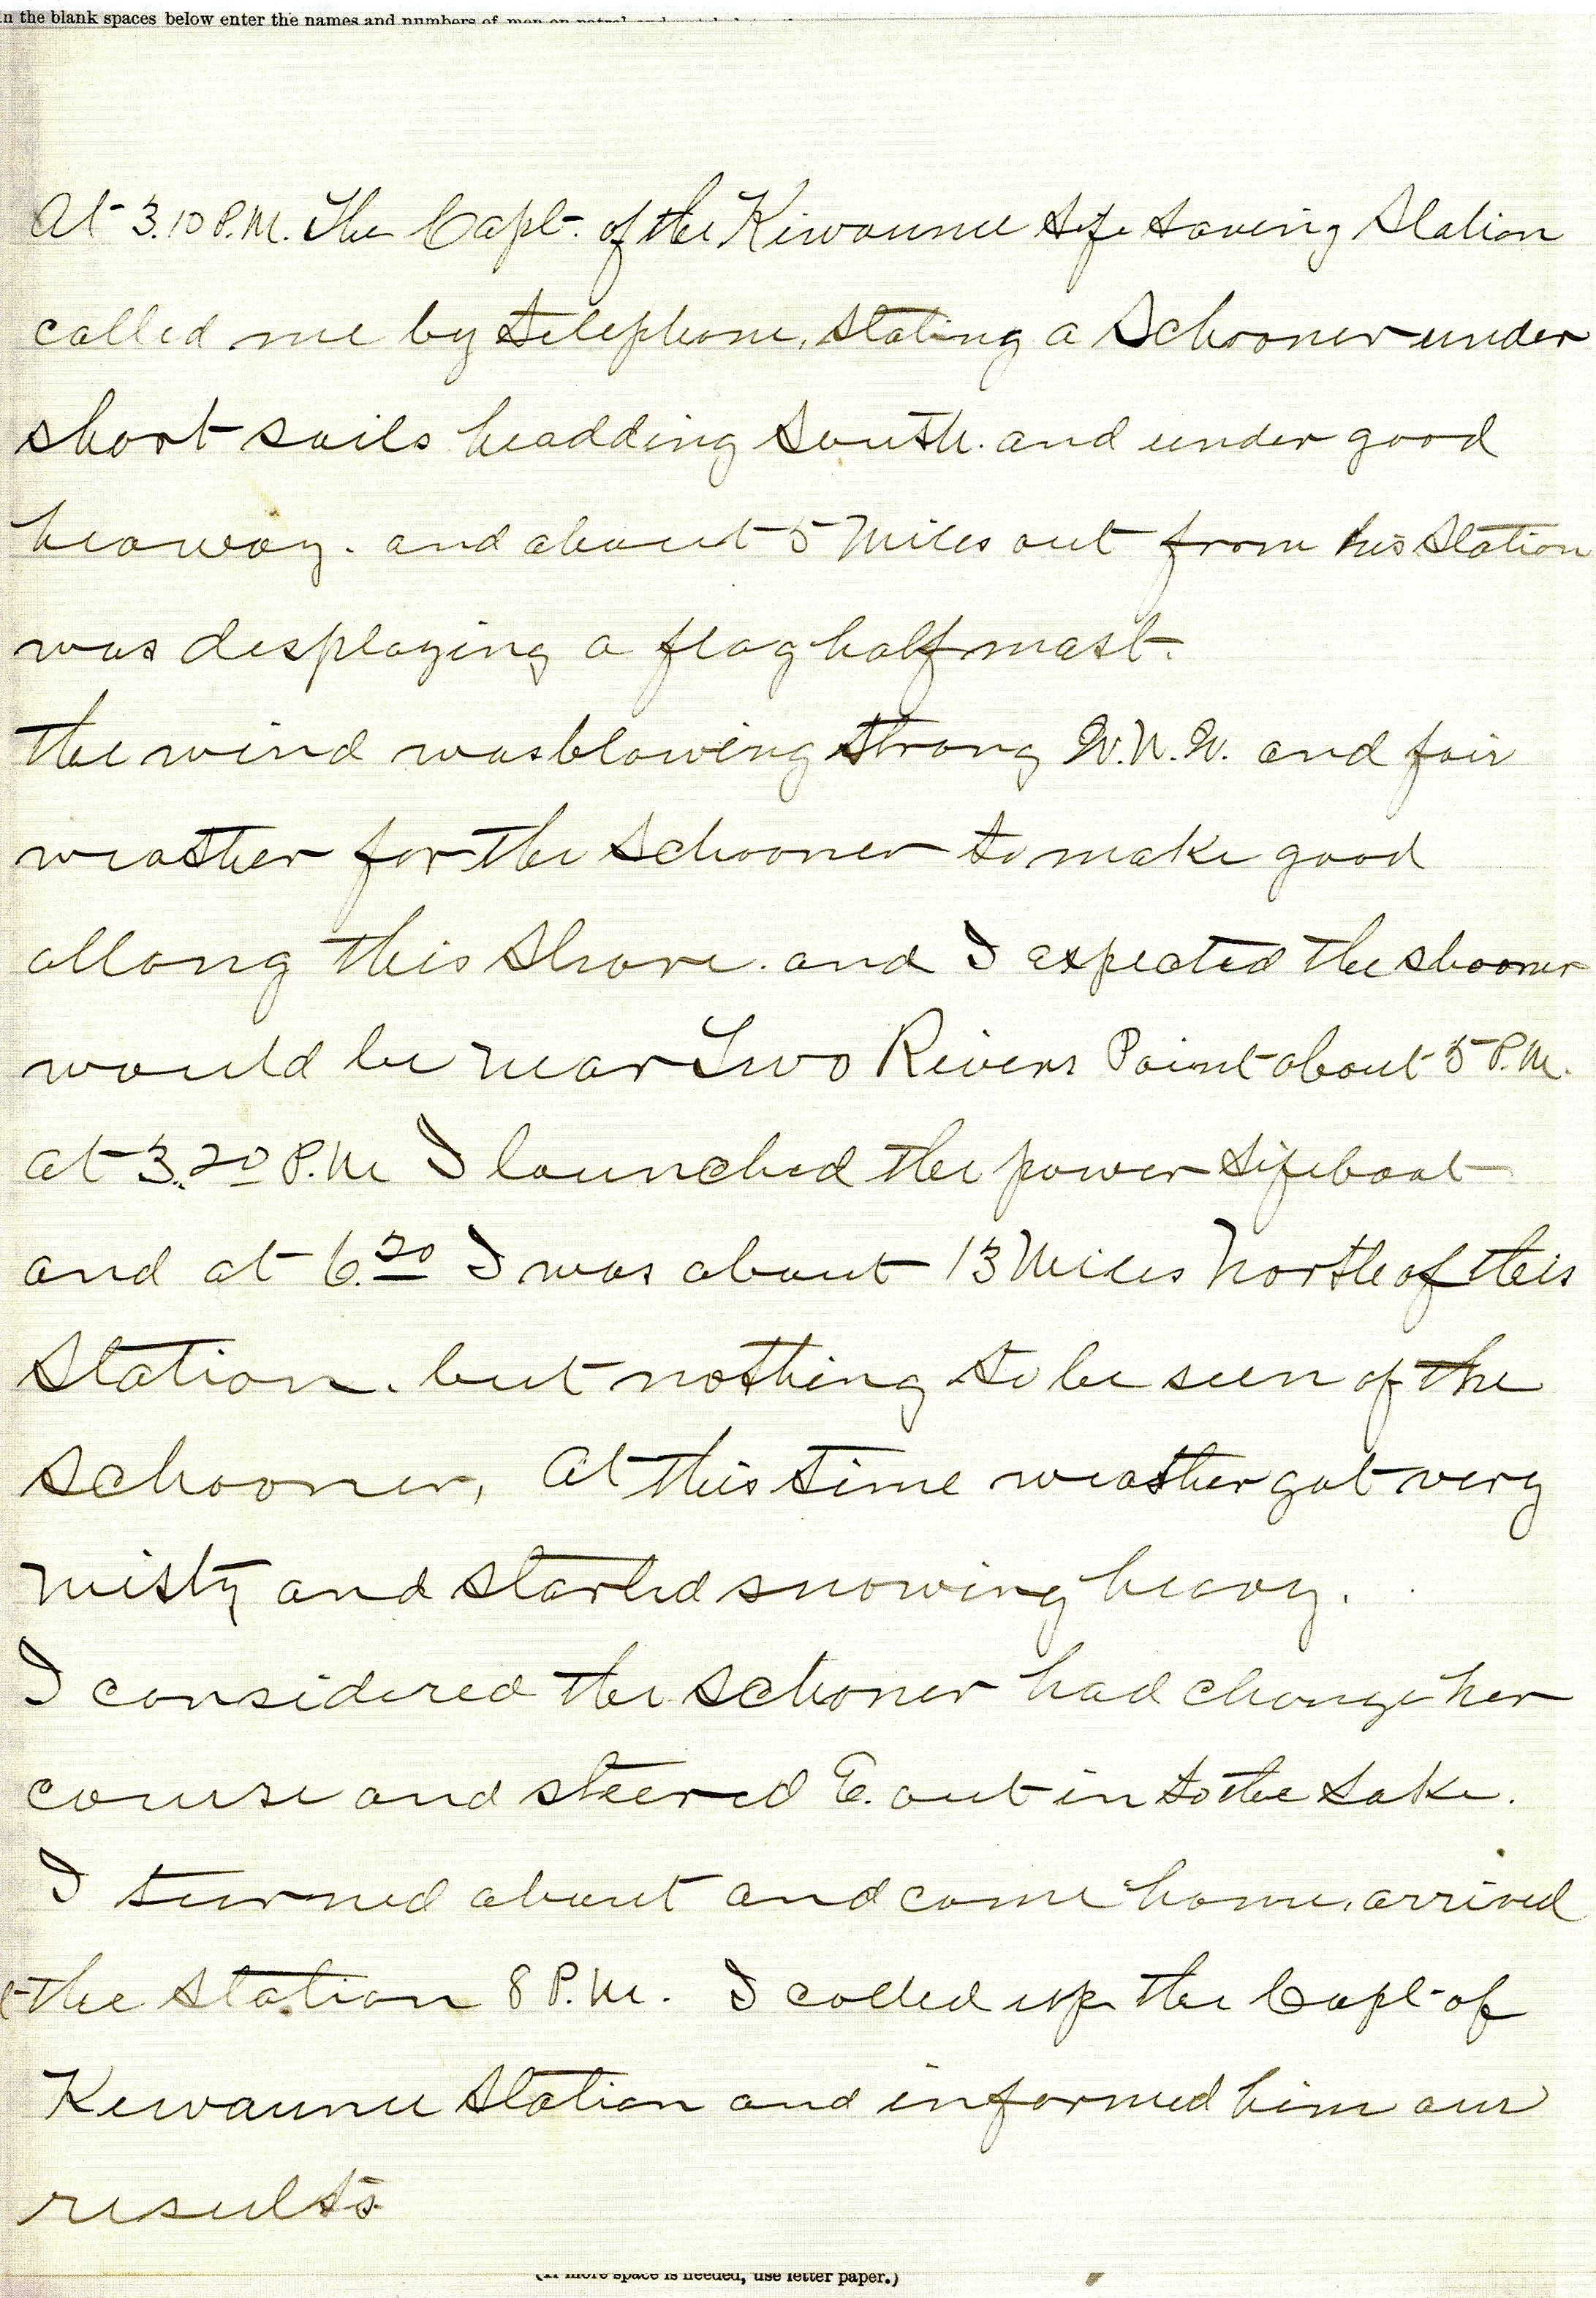 In the blank spaces below enter the names and numbers of men on patrol and
At 3.10 P.M. The Capt. of the Kiwaunee Life Saving Station
called me by telephone, stating a Schooner under
short sails headding South. and under good
heaway. and about 5 Miles out from his Station
was desplaying a flag half mast.
the wind was blowing strong W.N.W. and fair
weather for the Schooner to make good
allong this Shore. and I expected the shooner
would be near Two Rivers Point about 5 P.M.
at 3.20 P.M I launched the power Lifeboat
and at 6.20 I was about 13 Miles North of this
Station. but nothing to be seen of the
schooner, At this time weather got very
misty and started snowing heavy.
I considered the schoner had change her
course and steered E. out in to the Lake.
I turned about and come home, arrived
the Station 8 P.M. I called up the Capt of
Kewaunee Station and informed him our
results
(If more space is needed, use letter paper.)